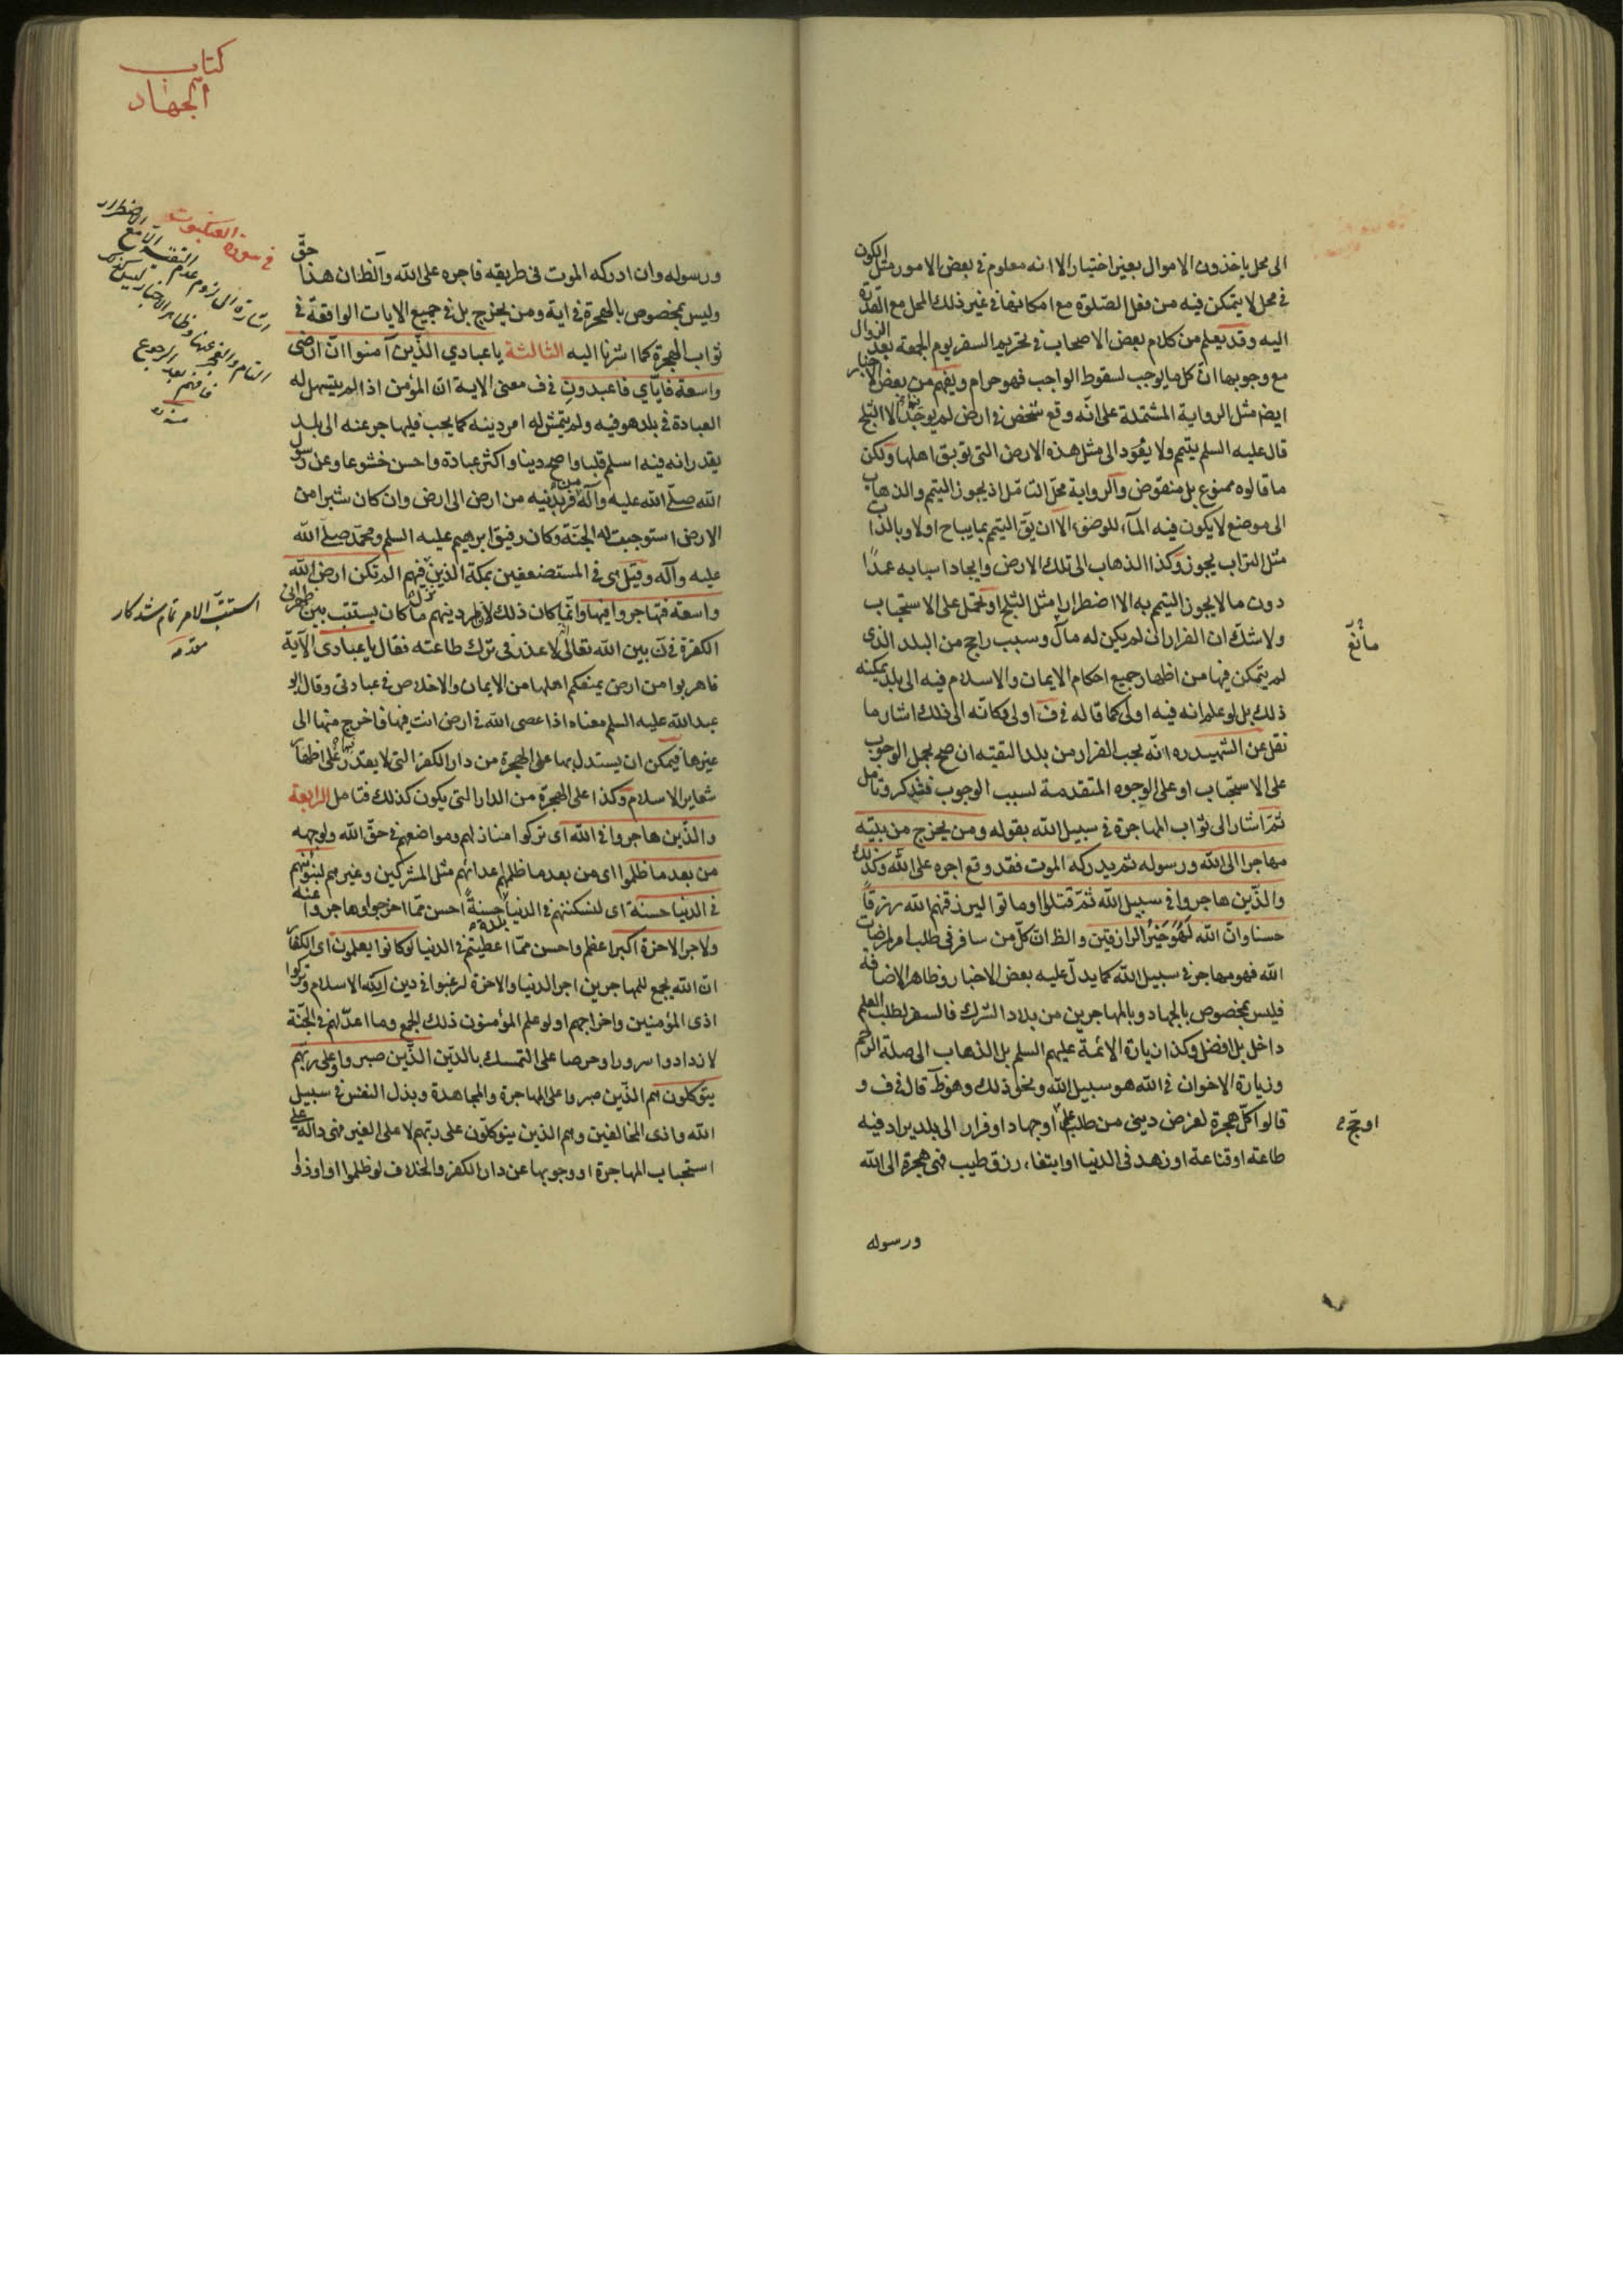 الى محل ياخذون الاموال بغير اختيار الا انه معلوم في بعض الامور مثل الكون
في محل لا يتمكن فيه من فعل الصّلوة مع امكانها في غير ذلك المحل مع القدرة
اليه وقد يعلم من كلام بعض الاصحاب في تحريم السفر يوم الجمعة بعد الزوال
مع وجوبها انّ كل ما يوجب لسقوط الواجب فهو حرام ويفهم من بعض الاخبار
ايضم مثل الرواية المشتملة على انّه وقع شخص في ارض لم يوجد فيها الا الثلج
قال عليه السلم يتيمم ولا يعود الى مثل هذه الارض التي توبق اهلها ولكن
ما قالوه ممنوع بل منقوض والرواية محلّ التامّل اذ يجوز التيمم والذهاب
الى موضع لا يكون فيه المآء للوضوء الا ان يقٓ التيمم بما يباح اولا وبالذات
مثل التراب يجوز وكذا الذهاب الى تلك الارض وايجاد اسبابه عمدًا
دون ما لا يجوز التيمم به الا اضطرارا مثل الثلج او تحمل على الاستحباب
ولا شكّ ان الفرار الى لم يكن له مال وسبب راجح من البلد الذى
لم يتمكن فيها من اظهار جميع احكام الايمان والاسلام فيه الى بلد يمكنه
ذلك بل لو علم انه فيه اولى كما قاله في ف اولى وكانّه الى ذلك اشار ما
نقل عن الشهيد ره انّه يجب الفرار من بلد التقية ان صح بحمل الوجوب
على الاستحباب او على الوجوه المتقدمة لسبب الوجوب فتذكر وتامل
ثمّ اشار الى ثواب المهاجرة في سبيل الله بقوله ومن يخرج من بيته
مهاجرا الى الله ورسوله ثم يدركه الموت فقد وقع اجره على الله وكذلك
والذّين هاجروا في سبيل الله ثمّ قتلوا او ماتوا ليرزقنهم الله رزقًا
حسنا وانّ الله لَهُوَ خَيْرُ الرازقين والظ ان كلّ من سافر في طلب امر مرضات
الله فهو مهاجر في سبيل الله كما يدلّ عليه بعض الاخبار وظاهر الاضافة
فليس بمخصوص بالجهاد وبالمهاجرين من بلاد الشرك فالسفر لطلب العلم
داخل بل افضل وكذا زيارة الائمة عليهم السلم بل الذهاب الى صلة الرحم
وزيارة الاخوان في الله هو سبيل الله ونحو ذلك وهو ظٓ قال في ف و
قالوا كلّ هجرة لغرض ديني من طلب علم او جهاد او فرار الى بلد يراد فيه
طاعة او قناعة او زهد في الدنيا او ابتغاء رزق طيب فهى هجرة الى الله
ورسوله
مانع
او حجّ
كتاب
الجهاد
ورسوله وان ادركه الموت في طريقه فاجره على الله والظ ان هذا حقّ
وليس بمخصوص بالهجرة في اية ومن يخرج بل في جميع الايات الواقعة في
ثواب الهجرة كما اشرنا اليه الثالثة يا عبادي الذّين آمنوا انّ ارضى
واسعة فايّاي فاعبدون في ف معنى الاية انّ المؤمن اذا لم يتسهل له
العبادة في بلد هو فيه ولم يتمش له امر دينه كما يحب فليهاجر عنه الى بلد
يقدر انه فيه اسلم قلبا واصح دينا واكثر عبادة واحسن خشوعا وعن رسول
الله صلّى الله عليه وآله من فرّ بدينه من ارض الى ارض وان كان شبرا من
الارض استوجبت له الجنّة وكان رفيق ابرهيم عليه السلم ومحمّد صلى الله
عليه وآله وقيل هى في المستضعفين بمكة الذين نزل فيهم الم تكن ارض الله
واسعة فتهاجروا فيها وانّما كان ذلك لان امر دينهم ما كان يستتب بين ظهراني
الكفرة في نٓ بين الله تعالى لا عذر في ترك طاعته فقال يا عبادى الآية
فاهربوا من ارض يمنعكم اهلها من الايمان والاخلاص في عبادتى وقال ابو
عبد الله عليه السلم معناه اذا عصى الله في ارض انت فيها فاخرج منها الى
غيرها فيمكن ان يستدل بها على الهجرة من دار الكفر التى لا يقدر فيها على اظهار
شعاير الاسلام وكذا على الهجرة من الدار التى يكون كذلك فتامل الرابعة
والذّين هاجروا في الله اى تركوا منازلهم ومواضعهم في حقّ الله ولوجهه
من بعد ما ظلموا اى من بعد ما ظلمهم اعدائهم مثل المشركين وغيرهم لنبوئنهم
في الدنيا حسنة اى لنسكننهم في الدنيا بلدة حسنةً احسن ممّا اخرجوا وهاجروا عنه
ولاجر الاخرة اكبر اعظم واحسن ممّا اعطيتهم في الدنيا لو كانوا يعلمون اى الكفار
ان الله يجمع للمهاجرين اجر الدنيا والاخرة لرغبوا في دين الله الاسلام وتركوا
اذى المؤمنين واخراجهم او لو علم المؤمنون ذلك الجمع وما اعدّ لهم في الجنّة
لازدادوا سرورا وحرصا على التمسك بالدّين الذّين صبروا وعلى ربّهم
يتوكلون هم الذّين صبروا على المهاجرة والمجاهدة وبذل النفس في سبيل
الله واذى المخالفين وهم الذين يتوكلّون على ربّهم لا على الغير فهى دالة على
استحباب المهاجرة او وجوبها عن دار الكفر والخلاف لو ظلموا او اوذوا
في سورة العنكبوت
استتبّ الامر تمام شد كار